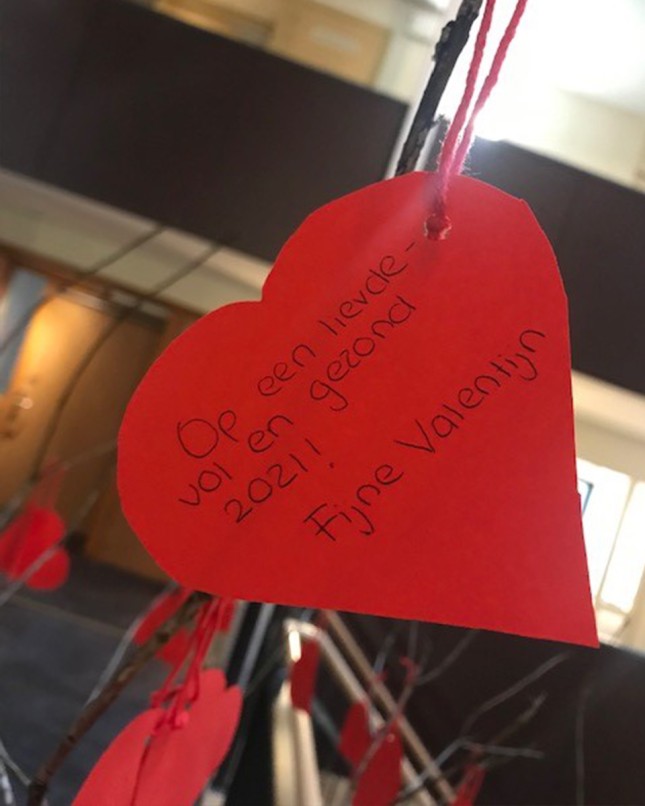 Op een lievde-
vol en gezond
2021!!
Fijne Valentijn